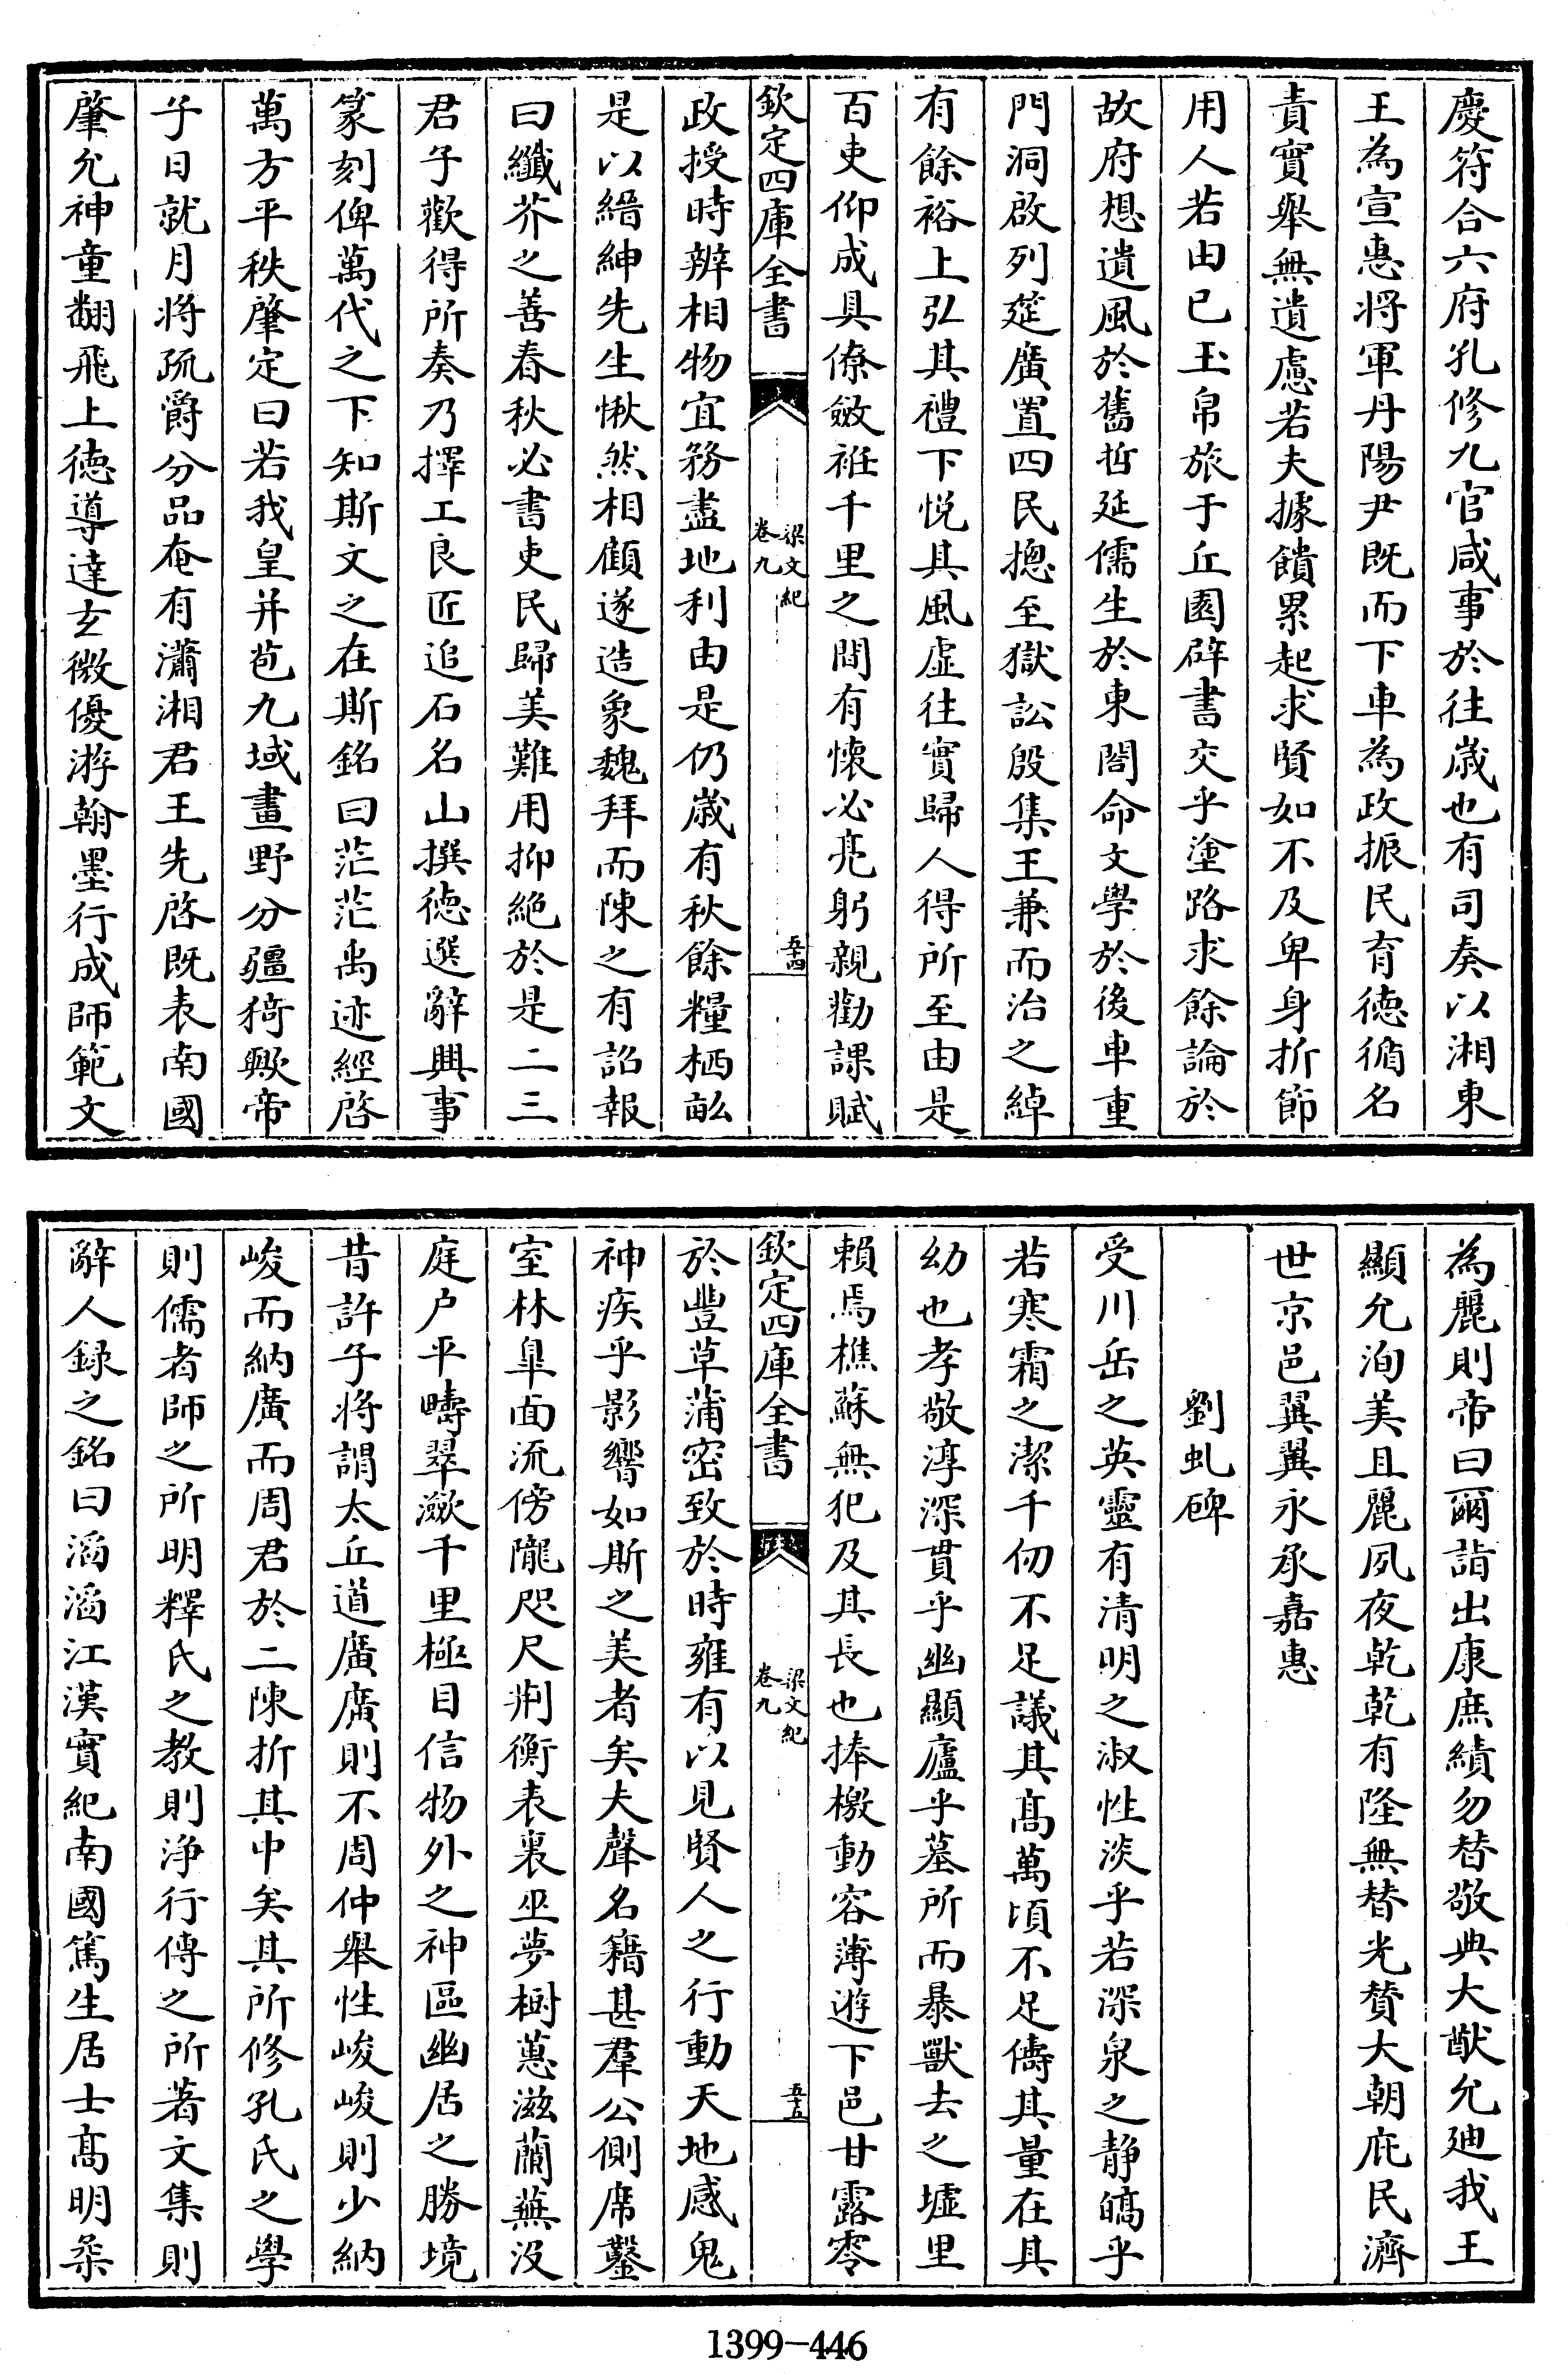 慶符合六府孔修九官咸事於往歳也有司奏以湘東
王為宣惠將軍丹陽尹既而下車為政振民育徳循名
責實舉無遺慮若夫據饋累起求賢如不及卑身折節
用人若由已玉帛旅于丘園辟書交乎塗路求餘論於
故府想遺風於舊哲延儒生於東閤命文學於後車重
門洞啟列筵廣置四民摠至獄訟殷集王兼而治之綽
有餘裕上弘其禮下悦其風虛往實歸人得所至由是
百吏仰成具僚斂袵千里之間有懷必亮躬親勸課賦
欽定四庫全書
梁文紀
卷九
五十四
政授時辨相物宜務盡地利由是仍歳有秋餘糧栖畝
是以縉紳先生愀然相顧遂造象魏拜而陳之有詔報
曰纖芥之善春秋必書吏民歸美難用抑絶於是二三
君子歡得所奏乃擇工良匠追石名山撰徳選辭興事
篆刻俾萬代之下知斯文之在斯銘曰茫茫禹迹經啓
萬方平秩肇定曰若我皇并苞九域畫野分疆猗歟帝
子日就月將疏爵分品奄有瀟湘君王先啓既表南國
肇允神童翻飛上徳導達玄微優游翰墨行成師範文
為麗則帝曰爾諧出康庶績勿替敬典大猷允廸我王
顯允洵美且麗夙夜乾乾有隆無替光賛大朝庇民濟
世京邑翼翼永承嘉惠
劉虬碑
受川岳之英靈有清明之淑性淡乎若深泉之静皜乎
若寒霜之潔千仞不足議其髙萬頃不足儔其量在其
幼也孝敬淳深貫乎幽顯廬乎墓所而暴獸去之墟里
賴焉樵蘇無犯及其長也捧檄動容薄遊下邑甘露零
欽定四庫全書
梁文紀
卷九
五十五
於豐草蒲密致於時雍有以見賢人之行動天地感鬼
神疾乎影響如斯之美者矣夫聲名籍甚羣公側席鑿
室林臯面流傍隴咫尺荆衡表裏巫夢樹蕙滋蘭蕪没
庭户平疇翠瀲千里極目信物外之神區幽居之勝境
昔許子將謂太丘道廣廣則不周仲舉性峻峻則少納
峻而納廣而周君於二陳折其中矣其所修孔氏之學
則儒者師之所明釋氏之教則浄行傳之所著文集則
辭人録之銘曰滔滔江漢實紀南國篤生居士髙明柔
1399-446